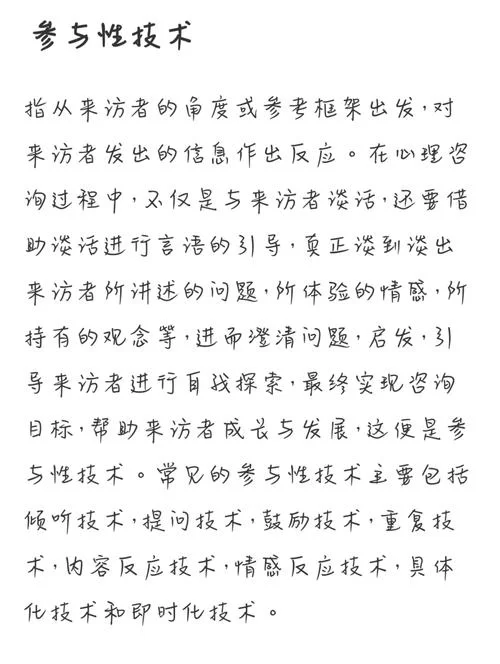 参与性技术
指从来访者的角度或参考框架出发,对
来访者发出的信息作出反应。在心理咨
询过程中,不仅是与来访者谈话,还要借
助谈话进行言语的引导,真正谈到谈出
来访者所讲述的问题,所体验的情感,所
持有的观念等,进而澄清问题,启发,引
导来访者进行自我探索,最终实现咨询
目标,帮助来访者成长与发展,这便是参
与性技术。常见的参与性技术主要包括
倾听技术,提问技术,鼓励技术,重复技
术,内容反应技术,情感反应技术,具体
化技术和即时化技术。